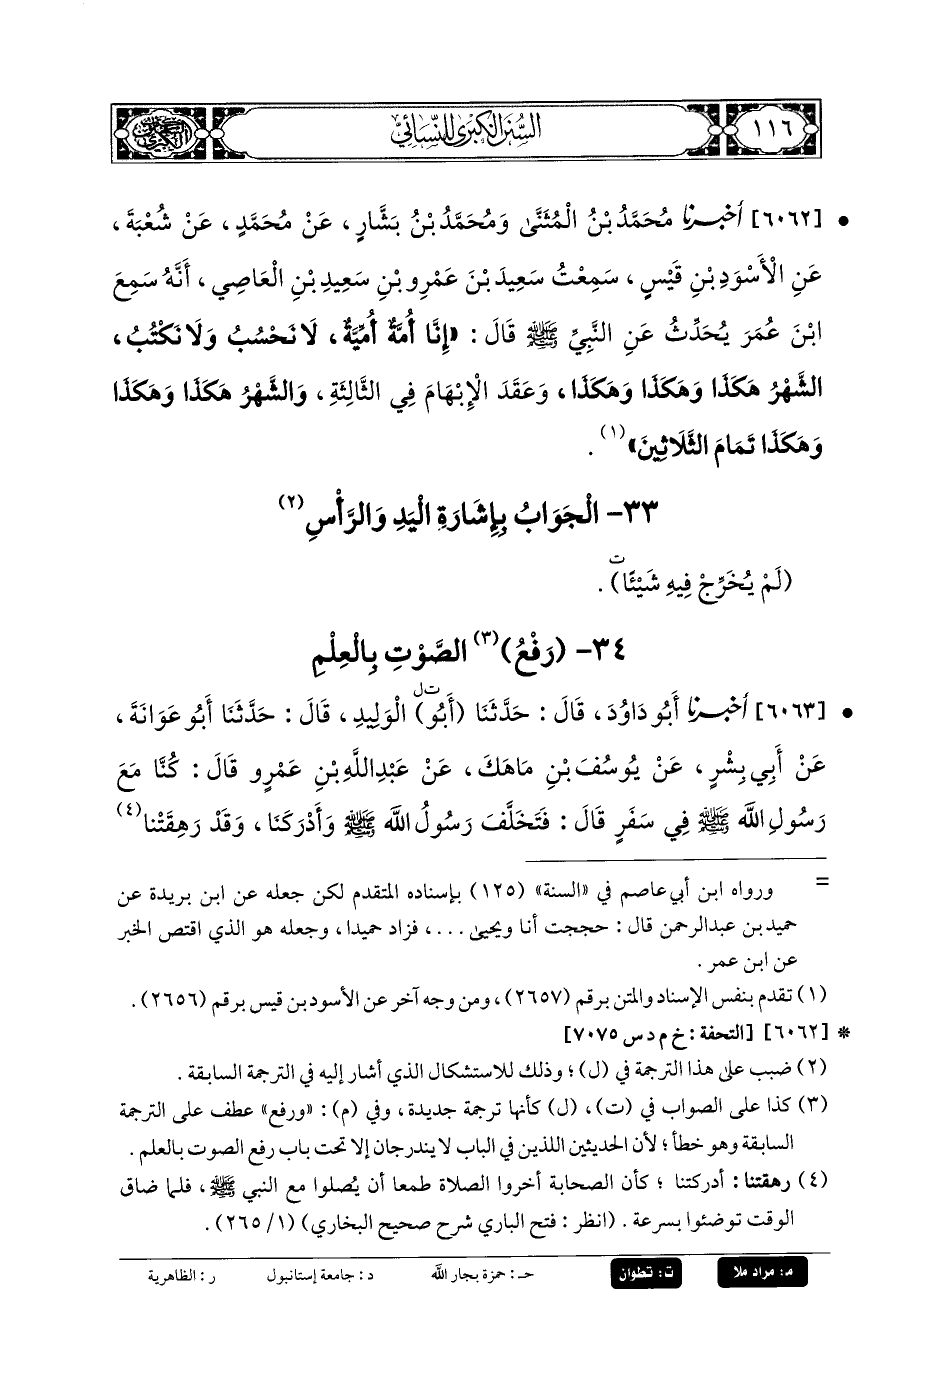 ١١٦
السنن الكبرى للنسائي
• [٦٠٦٢] أخبرنا مُحَمَّدُ بْنُ الْمُثَنَّى وَمُحَمَّدُ بْنُ بَشَّارٍ، عَنْ مُحَمَّدٍ، عَنْ شُعْبَةَ،
عَنِ الْأَسْوَدِ بْنِ قَيْسٍ، سَمِعْتُ سَعِيدَ بْنَ عَمْرِو بْنِ سَعِيدِ بْنِ الْعَاصِي، أَنَّهُ سَمِعَ
ابْنَ عُمَرَ يُحَدِّثُ عَنِ النَّبِيِّ ﷺ قَالَ: «إِنَّا أُمَّةٌ أُمِّيَّةٌ، لَا نَحْسُبُ وَلَا نَكْتُبُ،
الشَّهْرُ هَكَذَا وَهَكَذَا وَهَكَذَا، وَعَقَدَ الْإِبْهَامَ فِي الثَّالِثَةِ، وَالشَّهْرُ هَكَذَا وَهَكَذَا
وَهَكَذَا تَمَامَ الثَّلَاثِينَ»(١).
٣٣- الْجَوَابُ بِإِشَارَةِ الْيَدِ وَالرَّأْسِ(٢)
(لَمْ يُخَرِّجْ فِيهِ شَيْئًا)ت.
٣٤- (رَفْعُ)(٣) الصَّوْتِ بِالْعِلْمِ
• [٦٠٦٣] أخبرنا أَبُو دَاوُدَ، قَالَ: حَدَّثَنَا (أَبُو)ت ل الْوَلِيدِ، قَالَ: حَدَّثَنَا أَبُو عَوَانَةَ،
عَنْ أَبِي بِشْرٍ، عَنْ يُوسُفَ بْنِ مَاهَكَ، عَنْ عَبْدِ اللَّهِ بْنِ عَمْرٍو قَالَ: كُنَّا مَعَ
رَسُولِ اللَّهِ ﷺ فِي سَفَرٍ قَالَ: فَتَخَلَّفَ رَسُولُ اللَّهِ ﷺ وَأَدْرَكَنَا، وَقَدْ رَهِقَتْنَا(٤)
= ورواه ابن أبي عاصم في «السنة» (١٢٥) بإسناده المتقدم لكن جعله عن ابن بريدة عن
حميد بن عبدالرحمن قال: حججت أنا ويحيى ...، فزاد حميدا، وجعله هو الذي اقتص الخبر
عن ابن عمر.
(١) تقدم بنفس الإسناد والمتن برقم (٢٦٥٧)، ومن وجه آخر عن الأسود بن قيس برقم (٢٦٥٦).
* [٦٠٦٢] [التحفة: خ م د س ٧٠٧٥]
(٢) ضبب على هذا الترجمة في (ل)؛ وذلك للاستشكال الذي أشار إليه في الترجمة السابقة.
(٣) كذا على الصواب في (ت)، (ل) كأنها ترجمة جديدة، وفي (م): «ورفع» عطف على الترجمة
السابقة وهو خطأ؛ لأن الحديثين اللذين في الباب لا يندرجان إلا تحت باب رفع الصوت بالعلم.
(٤) رهقتنا: أدركتنا؛ كأن الصحابة أخروا الصلاة طمعا أن يُصلوا مع النبي ﷺ، فلما ضاق
الوقت توضئوا بسرعة. (انظر: فتح الباري شرح صحيح البخاري) (١/ ٢٦٥).
م: مراد ملا ت: تطوان حـ: حمزة بجار الله د: جامعة إستانبول ر: الظاهرية